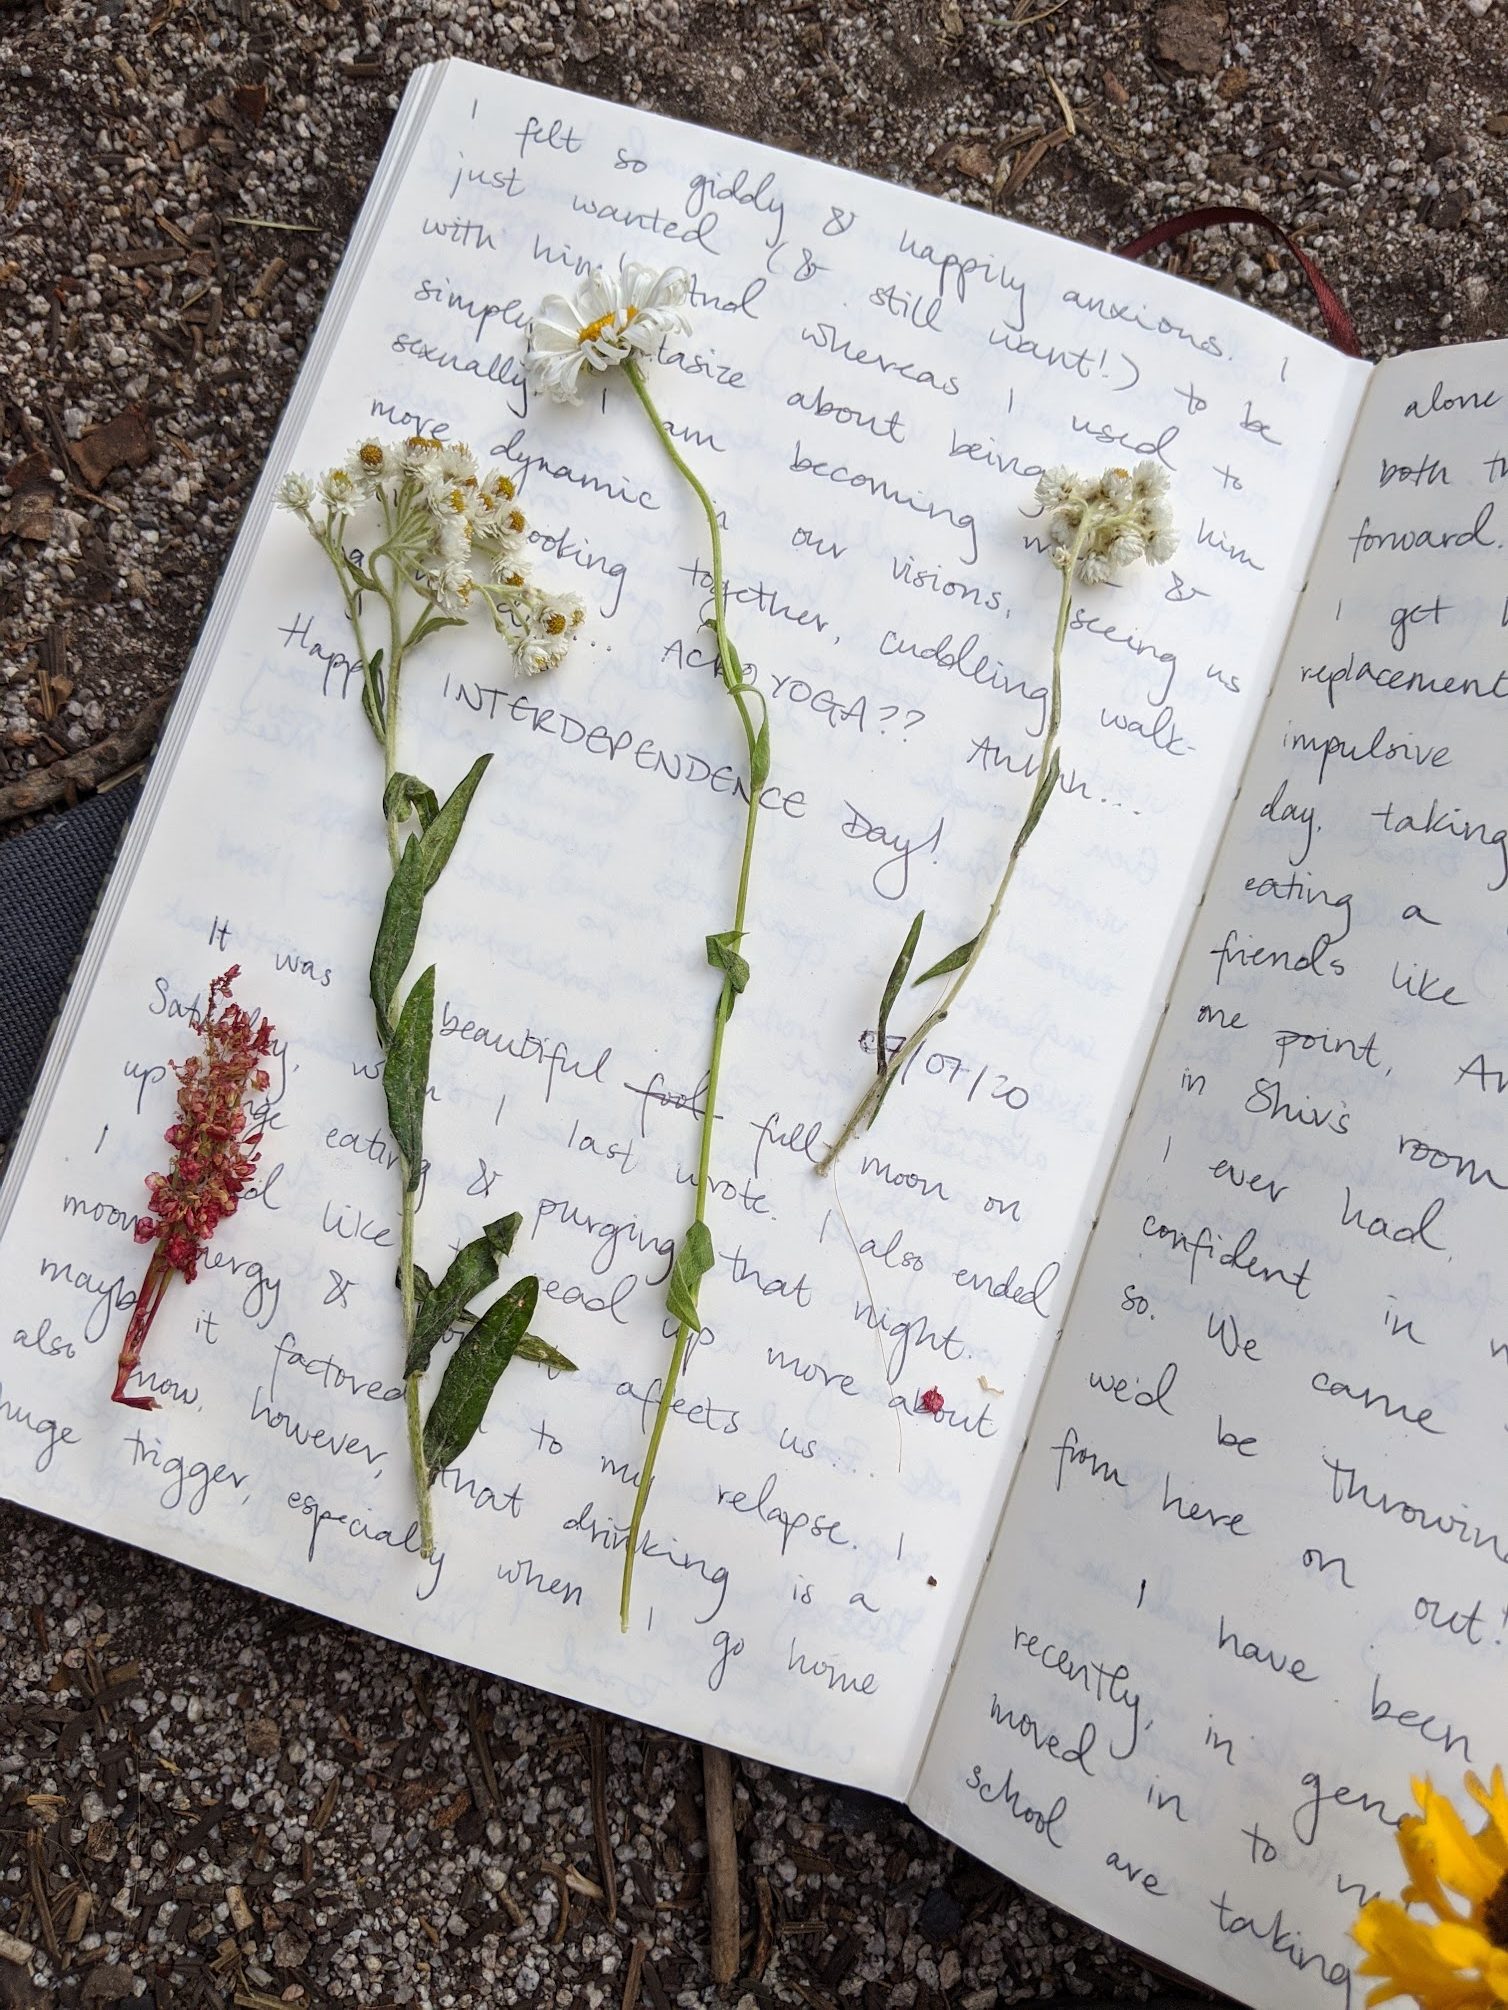 I felt so giddy & happily anxious. I
just wanted (& still want!) to be
with him! And whereas I used to
simply fantasize about being him
sexually, I am becoming &
more dynamic in our visions, seeing us
cooking together, cuddling, walk-
ACRO YOGA?? Ahhhh...
Happy INTERDEPENDENCE Day!
07/07/20
It was beautiful fool full moon on
Saturday, when I last wrote. I also ended
up binge eating & purging that night.
I would like to read up more about
moon energy & how it affects us...
maybe it factored in to my relapse. I
also know, however, that drinking is a
huge trigger, especially when I go home
alone
both
forward.
I get
replacement
impulsive
day, taking
eating a
friends like
one point,
in Shiv's room
I ever had.
confident in
so. We came
we'd be throwing
from here on out!
I have been
recently, in
moved in to
school are taking